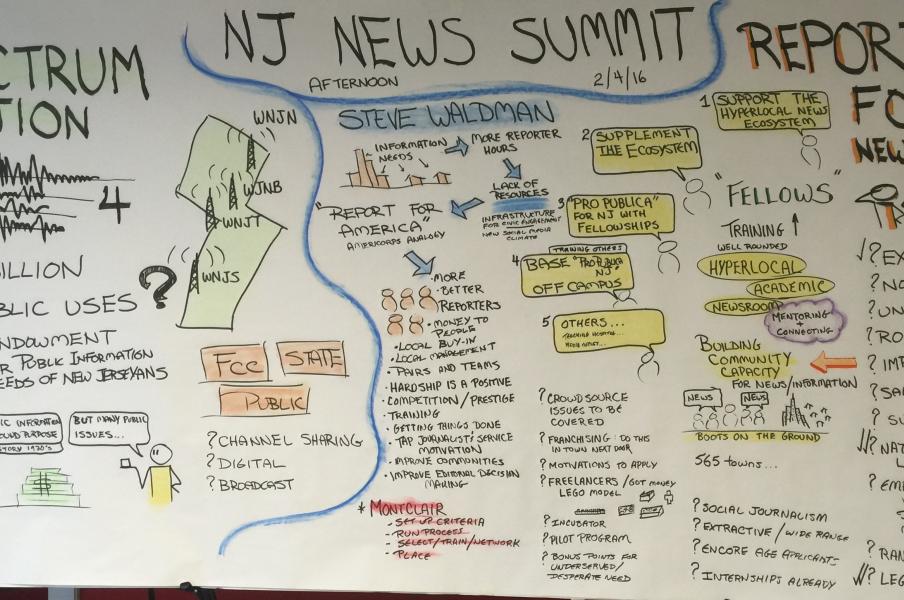 NJ NEWS SUMMIT
AFTERNOON
2/4/16
CTRUM
TION
4
ILLION
BLIC USES
NDOWMENT
R PUBLIC INFORMATION
EEDS OF NEW JERSEYANS
IC INFORMATION
OUND PURPOSE
STORY 1970'S
BUT MANY PUBLIC
ISSUES...
$
WNJN
WJNB
WNJT
WNJS
?
FCC
STATE
PUBLIC
? CHANNEL SHARING
? DIGITAL
? BROADCAST
STEVE WALDMAN
INFORMATION
NEEDS
MORE REPORTER
HOURS
LACK OF
RESOURCES
INFRASTRUCTURE
FOR CIVIC ENGAGEMENT
NEW SOCIAL MEDIA
CLIMATE
"REPORT FOR
AMERICA"
AMERICORPS ANALOGY
• MORE
• BETTER
REPORTERS
• MONEY TO
PEOPLE
• LOCAL BUY-IN
• LOCAL MANAGEMENT
• PAIRS AND TEAMS
• HARDSHIP IS A POSITIVE
• COMPETITION / PRESTIGE
• TRAINING
• GETTING THINGS DONE
• TAP JOURNALISTS' SERVICE
MOTIVATION
• IMPROVE COMMUNITIES
• IMPROVE EDITORIAL DECISION
MAKING
* MONTCLAIR
- SET UP CRITERIA
- RUN PROCESS
- SELECT/TRAIN/NETWORK
- PLACE
1 SUPPORT THE
HYPERLOCAL NEWS
ECOSYSTEM
2 SUPPLEMENT
THE ECOSYSTEM
3 "PRO PUBLICA"
FOR NJ WITH
FELLOWSHIPS
TRAINING OTHERS
4 BASE "PRO PUBLICA
NJ"
OFF CAMPUS
5 OTHERS...
? CROWDSOURCE
ISSUES TO BE
COVERED
? FRANCHISING: DO THIS
IN TOWN NEXT DOOR
? MOTIVATIONS TO APPLY
? FREELANCERS / GOT MONEY
LEGO MODEL
? INCUBATOR
? PILOT PROGRAM
? BONUS POINTS FOR
UNDERSERVED/
DESPERATE NEED
"FELLOWS"
TRAINING
WELL ROUNDED
HYPERLOCAL
ACADEMIC
NEWSROOM
MENTORING
+
CONNECTING
BUILDING
COMMUNITY
CAPACITY
FOR NEWS/INFORMATION
NEWS
NEWS
BOOTS ON THE GROUND
565 TOWNS...
? SOCIAL JOURNALISM
? EXTRACTIVE / WIDE RANGE
? ENCORE AGE APPLICANTS
? INTERNSHIPS ALREADY
REPOR
FO
NEW
? EX
? NO
? UN
? RO
? IMP
? SA
? SU
? NAT
L
? EM
? RAN
? LEG